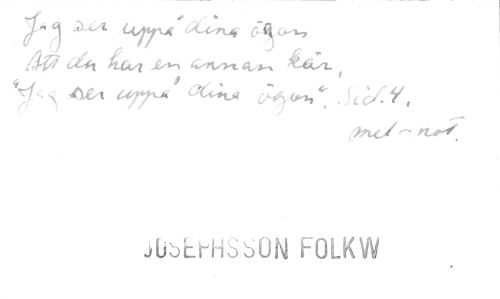 Jag ser uppå dina ögon
Att du har en annan kär,
"Jag ser uppå dina ögon". Sid. 4.
mel-not.
JOSEPHSSON FOLKW